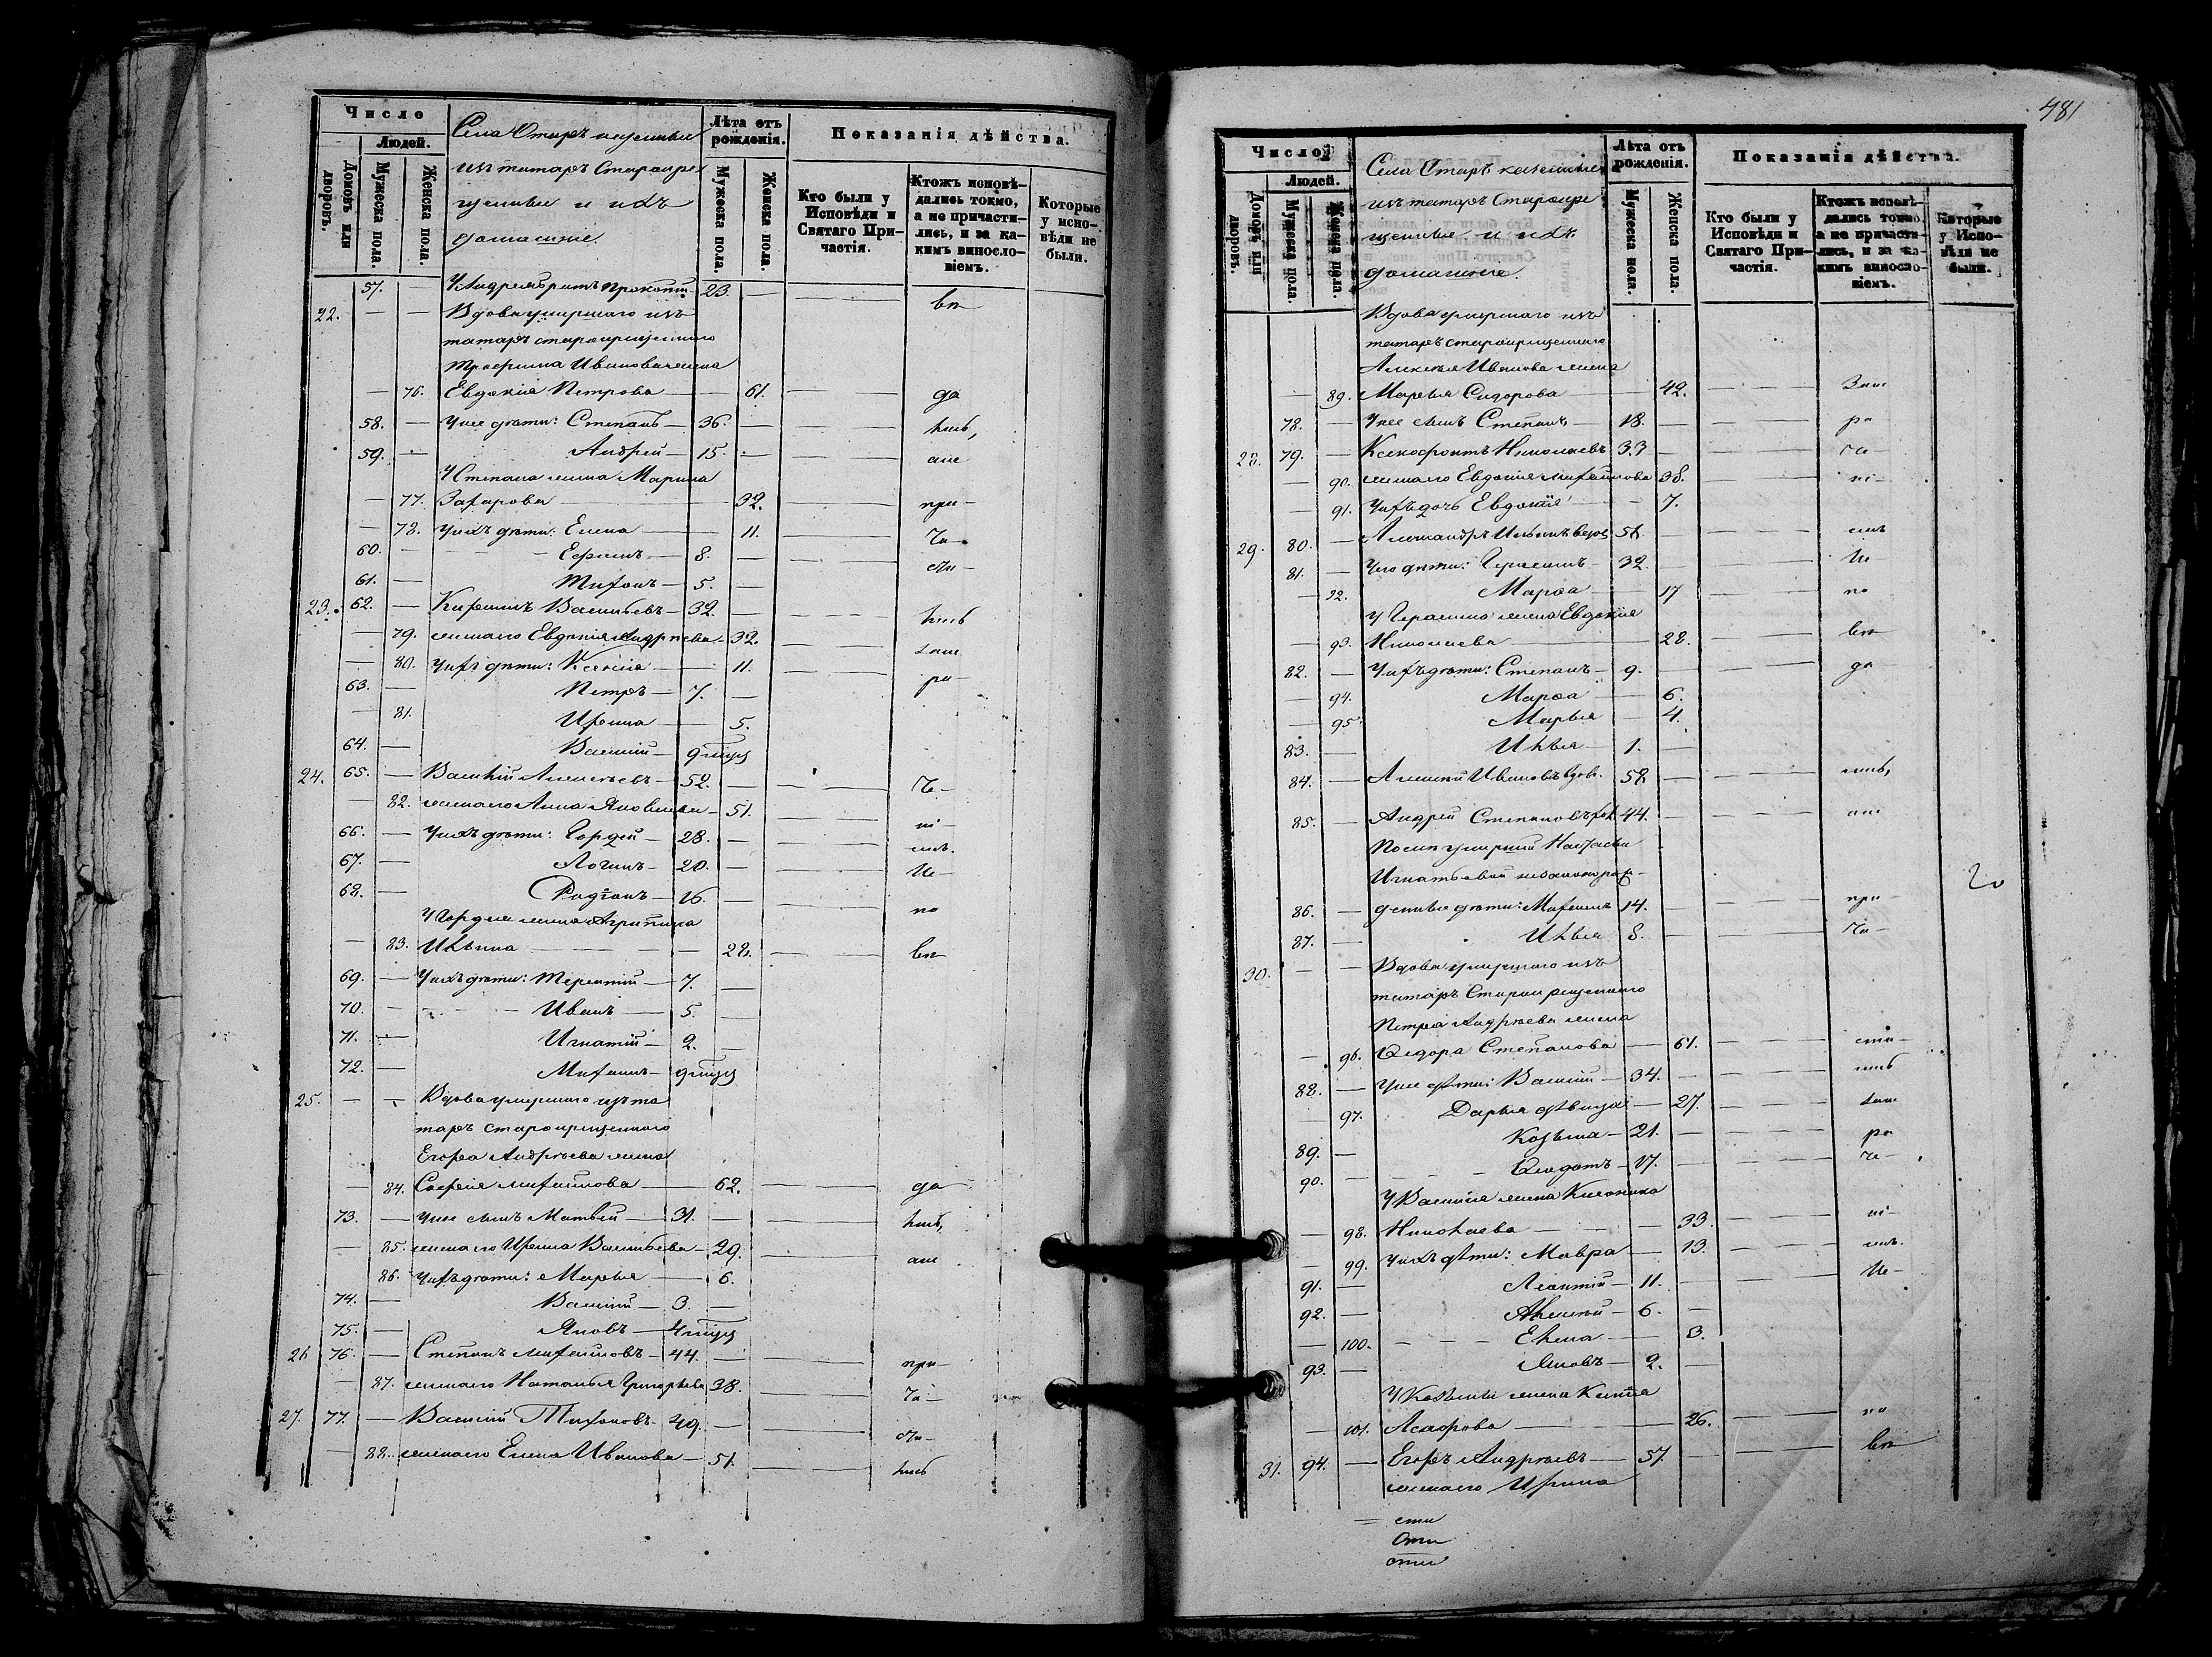 Число
Людей.
Домовъ или дворовъ.
Мужеска пола.
Женска пола.
Села Старъ казенные
изъ татаръ Старокре
щенные и ихъ
домашніе.
Лѣта отъ рожденія.
Мужеска пола.
Женска пола.
Показанія дѣйства.
Кто были у Исповѣди и Святаго При-
частія.
Ктожъ исповѣ-
дались токмо,
а не причасти-
лись, и за ка-
кимъ винословіемъ.
Которые у испо-
вѣди не были.
57. — У Андрея братъ Прокопій 23. — вп
22. — — Вдова умершаго изъ
татаръ старокрещеннаго
Трофима Иванова жена
— 76. Евдокія Петрова — 61. да
58. — У нее дѣти: Степанъ — 36. —
59. — Андрей — 15. —
У Степана жена Марина
— 77. Захарова — 32. при
— 78. У нихъ дѣти: Елена — 11. Ча
60. — Ефимъ — 8.
61. — Тихонъ — 5. —
23. 62. — Кирилъ Васильевъ — 32. —
— 79. жена его Евдокія Андреева — 32.
— 80. У нихъ дѣти: Ксенія — 11. ра
63. — Петръ — 7. —
— 81. Ирина — 5.
64. — Василій —
24. 65. — Василій Алексѣевъ — 52. —
— 82. жена его Анна Яковлева — 51. ні
66. — У нихъ дѣти: Гордѣй — 28. —
67. — Логинъ — 20. — Не
68. — Родіонъ — 16. — по
У Гордея жена Агрипина
— 83. Ильина — 28. вп
69. — У нихъ дѣти: Терентій — 7. —
70. — Иванъ — 5. —
71. — Игнатій — 2. —
72. — Михаилъ —
25. — — Вдова умершаго изъ та
таръ старокрещеннаго
Егора Андреева жена
— 84. Софія Михайлова — 62. да
73. — У нее сынъ Матвѣй — 31. —
— 85. жена его Ирина Васильева — 29.
86. У нихъ дѣти: Марья — 6.
74. — Василій — 3. —
75. — Яковъ —
26 76. — Степанъ Михайловъ — 44. — при
— 87. жена его Наталья Григорьева 38. Ча
27. 77. — Василій Тихоновъ — 49. —
— 88. жена его Елена Иванова — 51.
481
Число
Людей.
Домовъ или дворовъ.
Мужеска пола.
Женска пола.
Села Старъ казенные
изъ татаръ Старокре
щенные и ихъ
домашніе.
Лѣта отъ рожденія.
Мужеска пола.
Женска пола.
Показанія дѣйства.
Кто были у Исповѣди и Святаго При-
частія.
Ктожъ исповѣ-
дались токмо,
а не причасти-
лись, и за ка-
кимъ винословіемъ.
Которые у Испо-
вѣди не были.
Вдова умершаго изъ
татаръ старокрещеннаго
Алексѣя Иванова жена
— 89. Марья Сидорова — 42.
78. — У нее сынъ Степанъ — 18. — ра
28. 79. — Ксенофонтъ Николаевъ 33 —
— 90. жена его Евдокія Михайлова 38. ні
— 91. У нихъ дочь Евдокія — 7.
29. 80. — Александръ Ильинъ вдов 58 —
81. — У его дѣти: Герасимъ — 32. — Не
— 92. Марѳа — 17 по
У Герасима жена Евдокія
— 93. Николаева — 28. вп
82. — У нихъ дѣти: Степанъ — 9. — да
— 94. Марѳа — 6.
— 95. Марья — 4.
83. — Илья — 1. —
84. — Алексѣй Ивановъ вдов. 58 —
85. — Андрей Степановъ 44. —
После умершей Настасьи
Игнатьевой незаконорож-
86. — денные дѣти: Михаилъ 14. — при
87. — Илья 8. —
30. — — Вдова умершаго изъ
татаръ Старокрещеннаго
Петра Андреева жена
— 96. Ѳедора Степанова — 61. сти
88. — У нее дѣти: Василій — 34. —
— 97. Дарья дѣвица — 27.
89. — Козьма — 21. — ра
90. — Ѳедотъ — 17. —
У Василія жена
— 98. Николаева — 33. ні
— 99. У нихъ дѣти: Мавра — 13.
91. — Леонтій — 11. — Не
92. — Алексѣй — 6. —
— 100. — Елена — 3.
93. — Яковъ — 2. —
У Козьмы жена
— 101. — 26. по
31. 94. — Егоръ Андреевъ — 57. — вп
жена его Ирина
сти
Сти
сти